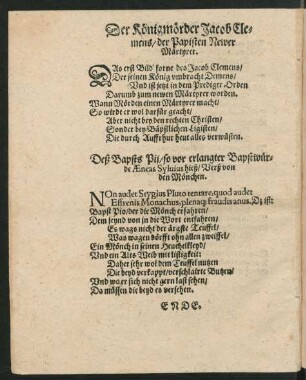 Der Königmörder Jacob Cle-
mens/der Papisten Newer
Märtyrer.
DAs erst Bild forne des Jacob Clemens/
Der seinen König vmbracht Demens/
Vnd ist jetzt in dem Prediger-Orden
Darumb zum newen Märtyrer worden.
Wann Mörden einen Märtyrer macht/
So würde er wol darfür geacht/
Aber nicht bey den rechten Christen/
Sonder bey Bäpstlichen Ligisten/
Die durch Auffrhur heut alles verwüsten.
Deß Bapsts Pii/so vor erlangter Bapstwür-
de Æneas Syluius hieß/Verß von
den Mönchen.
NOn audet Stygius Pluto tentare, quod audet
Effrenis Monachus, plenaque fraudis anus. Dz ist:
Bapst Pio/der die Mönch erfahren/
Dem seynd von in die Wort entfahren/
Es wags nicht der ärgste Teuffel/
Was wagen dörfft ohn allen zweiffel/
Ein Mönch in seinen
Vnd ein Alts Weib mit listigkeit:
Daher sehr wol dem Teuffel nutzen
Die beyd verkappt/verschlairte Butzen/
Vnd wa er sich nicht gern last sehen/
Da müssen die beyd es versehen.
ENDE.